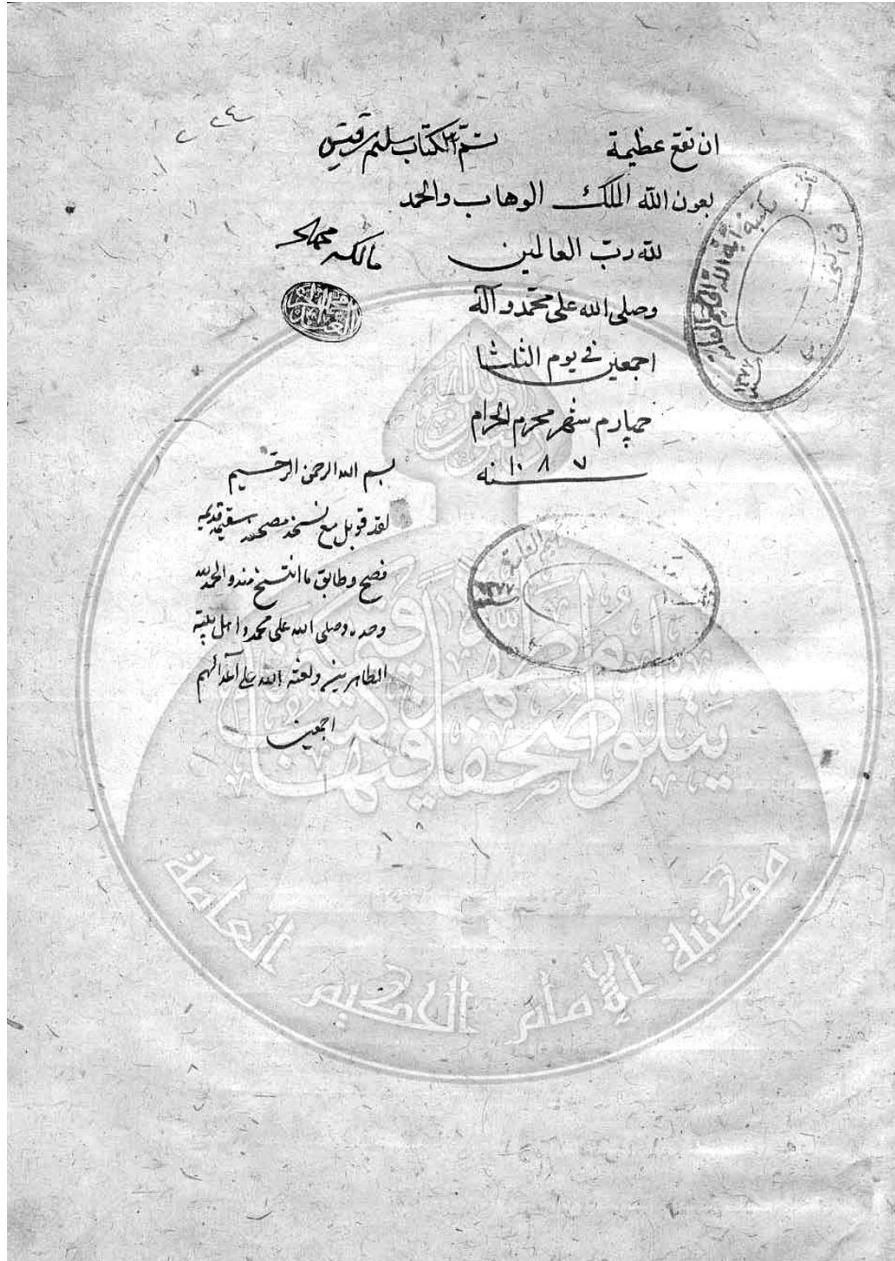 ان تقع عظيمة تم الكتاب سليم بن قيس
بعون الله الملك الوهاب والحمد
لله رب العالمين
وصلى الله على محمد وآله
اجمعين في يوم الثلثا
چهارم شهر محرم الحرام
سنه ١٠٨٧
مالكه
بسم الله الرحمن الرحيم
لقد قوبل مع نسخة مصححة قديمة
فصح وطابق ما انتسخ منه والحمد لله
وحده وصلى الله على محمد واهل بيته
الطاهرين ولعنة الله على اعدائهم
اجمعين
٢٢٤
مكتبة آية الله الحكيم العامة
١٣٧٧
١٣٧٧
يتلو صحفا مطهرة فيها كتب قيمة
مكتبة الإمام الحكيم العامة